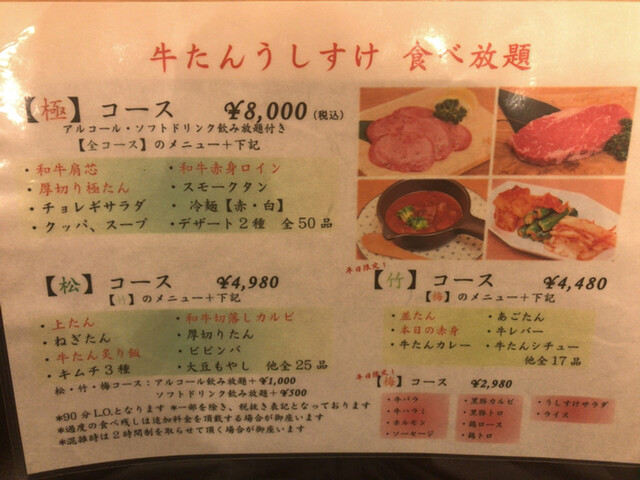 牛たんうしすけ 食べ放題
【極】コース ¥8,000（税込）
アルコール・ソフトドリンク飲み放題付き
【全コース】のメニュー＋下記
・和牛肩芯 ・和牛赤身ロイン
・厚切り極たん ・スモークタン
・チョレギサラダ ・冷麺【赤・白】
・クッパ、スープ ・デザート2種 全50品
【松】コース ¥4,980
【竹】のメニュー＋下記
・上たん ・和牛切落しカルビ
・ねぎたん ・厚切りたん
・牛たん炙り飯 ・ビビンバ
・キムチ3種 ・大豆もやし 他全25品
松・竹・梅コース：アルコール飲み放題＋¥1,000
ソフトドリンク飲み放題＋¥500
*90分L.O.となります *一部を除き、税抜き表記となっております
*過度の食べ残しは追加料金を頂戴する場合が御座います
*混雑時は2時間制を取らせて頂く場合が御座います
平日限定！
【竹】コース ¥4,480
【梅】のメニュー＋下記
・並たん ・あごたん
・本日の赤身 ・牛レバー
・牛たんカレー ・牛たんシチュー
他全17品
平日限定！
【梅】コース ¥2,980
・牛バラ ・黒豚カルビ ・うしすけサラダ
・牛ハラミ ・黒豚トロ ・ライス
・ホルモン ・鶏ロース
・ソーセージ ・鶏トロ